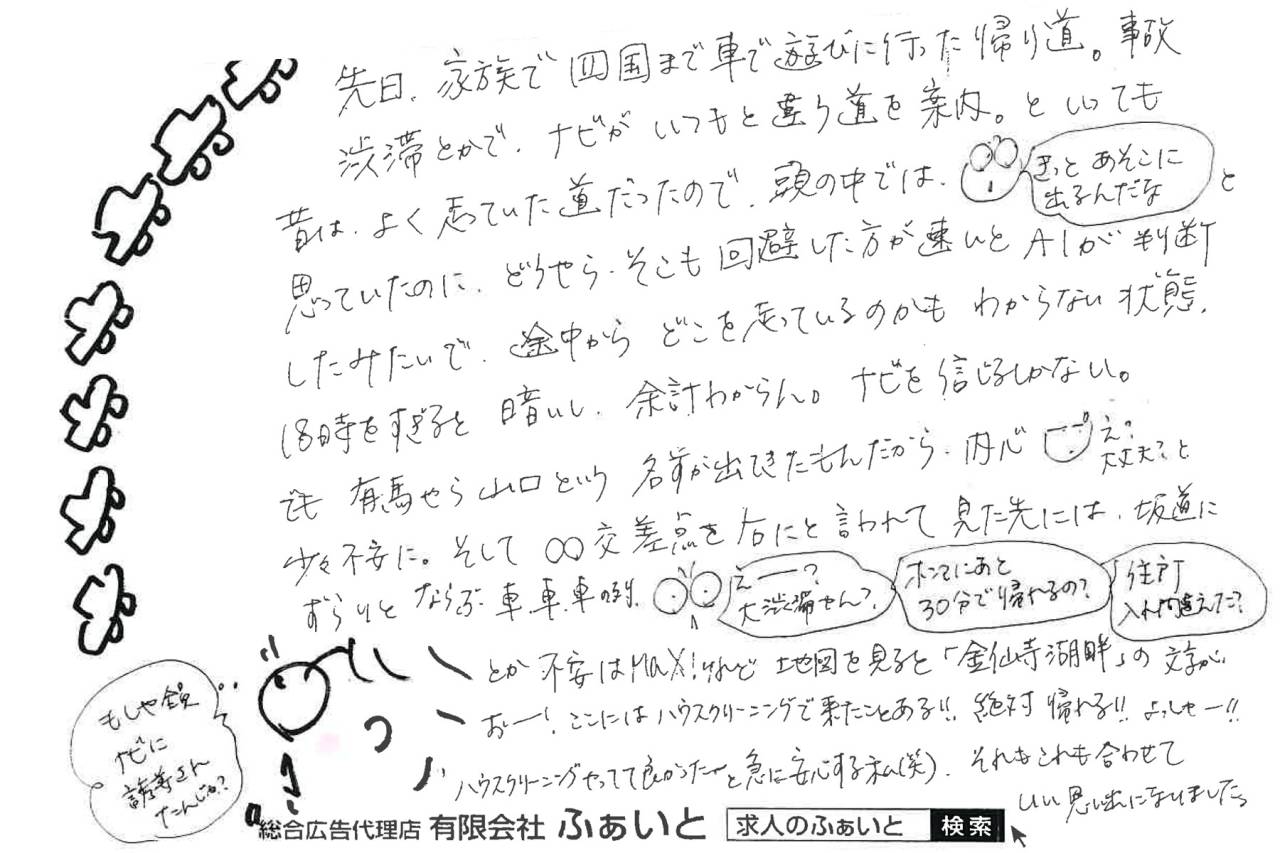 先日、家族で四国まで車で遊びに行った帰り道。事故
渋滞とかで、ナビがいつもと違う道を案内。といっても
昔は、よく走っていた道だったので、頭の中では、
きっとあそこに
出るんだな
と
思っていたのに、どうやら、そこも回避した方が速いとAIが判断
したみたいで、途中からどこを走っているのかもわからない状態、
18時をすぎると暗いし、余計わからん。ナビを信じるしかない。
でも有馬やら山口という名前が出てきたもんだから、内心
え?
大丈夫?と
少々不安に。そして〇〇交差点を右にと言われて見た先には、坂道に
ずらりとならぶ車、車、車の列。
えー?
大渋滞やん?
ホンマにあと
30分で帰れるの?
住所
入れ間違えた?
とか不安はMAX!けれど地図を見ると「金仙寺湖畔」の文字が
おー!ここにはハウスクリーニングで来たことある!!絶対帰れる!!よっしゃー!!
ハウスクリーニングやってて良かったーと急に安心する私(笑)、それもこれも合わせて
いい思い出になりました。
もしや全員
ナビに
誘導され
たんじゃ?
総合広告代理店 有限会社 ふぁいと 求人のふぁいと 検索